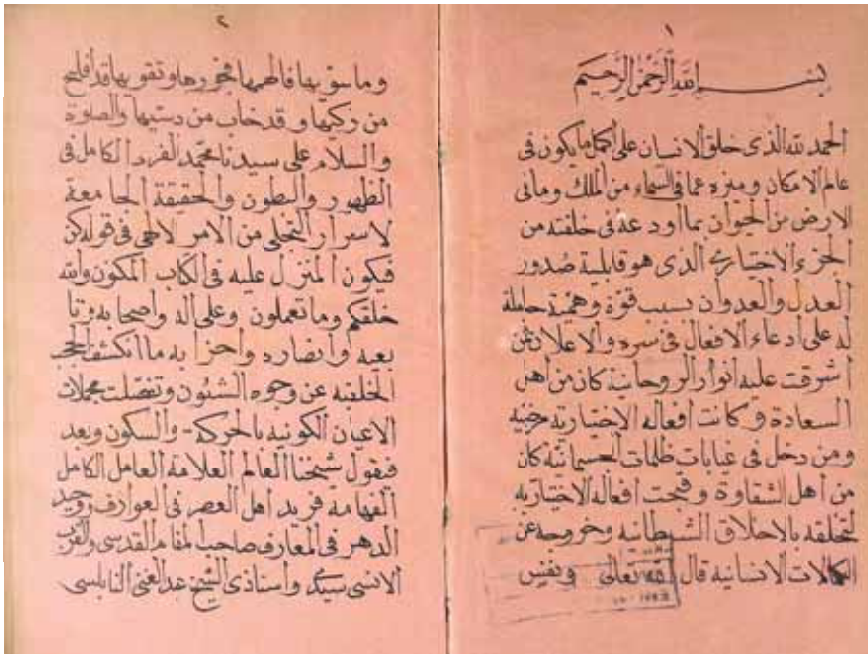 ١
بسم الله الرحمن الرحيم
الحمد لله الذى خلق الانسان على اكمل ما يكون فى
عالم الامكان ومنزه عما فى السماء من الملك وما فى
الارض من الحيوان بما اودعه فى خلقته من
الجزء الاختيارى الذى هو قابلية صُدور
العدل والعدوان بسبب قوّة وهمية حاملة
له على ادعاء الافعال فى سره والاعلان فمن
اشرقت عليه انوار الروحانية كان من اهل
السعادة وكانت افعاله الاختيارية مرضيه
ومن دخل فى غيابات ظلمات الجسمانية كان
من اهل الشقاوة وقبحت افعاله الاختياريه
لتخلقه بالاخلاق الشيطانيه وخروجه عن
الكمالات الانسانيه قال الله تعالى ونفس
٢
وما سويها فالهمها فجورها وتقويها قد افلح
من زكيها وقد خاب من دسيها والصلوة
والسلام على سيدنا محمد الفرد الكامل فى
الظهور والبطون والحقيقة الجامعة
لاسرار التجلى من الامر الالهى فى قوله كن
فيكون المنزل عليه فى الكتاب المكنون والله
خلقكم وما تعملون وعلى اله واصحابه وتا
بعيه وانصاره واحزابه ما انكشف الحجب
الخلقيه عن وجوه الشئون وتفصلت مجملات
الاعيان الكونيه بالحركة والسكون وبعد
فيقول شيخنا العالم العلامة العامل الكامل
الفهامة فريد اهل العصر فى العوارف ووحيد
الدهر فى المعارف صاحب المقام القدسى والقرب
الانسى سيدى واستاذى الشيخ عبد الغنى النابلسى